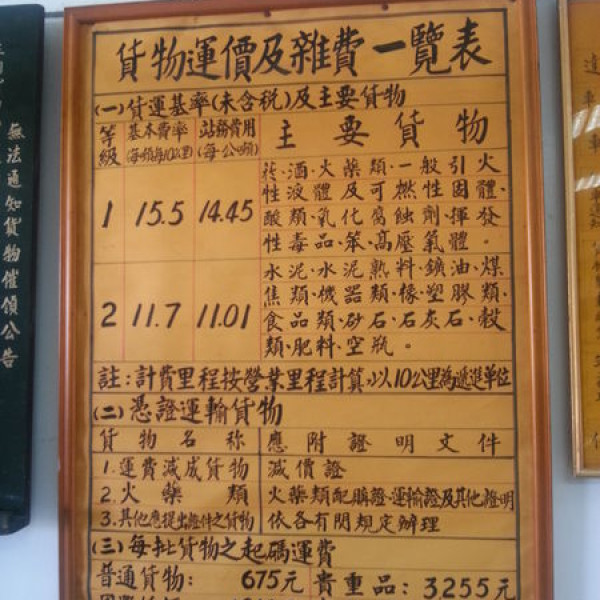 無法通知貨物催領公告
貨物運價及雜費一覽表
(一)貨運基率(未含稅)及主要貨物
等級 基本費率(每噸每10公里) 站務費用(每公噸) 主要貨物
1 15.5 14.45
菸、酒、火藥類、一般引火
性液體及可燃性固體、
酸類、氧化腐蝕劑、揮發
性毒品、苯、高壓氣體。
2 11.7 11.01
水泥、水泥熟料、鑛油、煤
焦類、機器類、橡塑膠類、
食品類、砂石、石灰石、穀
類、肥料、空瓶。
註:計費里程按營業里程計算,以10公里為遞進單位
(二)憑證運輸貨物
貨物名稱 應附證明文件
1.運費減成貨物 減價證
2.火藥類 火藥類配購證、運輸證及其他證明
3.其他應提出證件之貨物 依各有関規定辦理
(三)每批貨物之起碼運費
普通貨物: 675元 貴重品: 3,255元